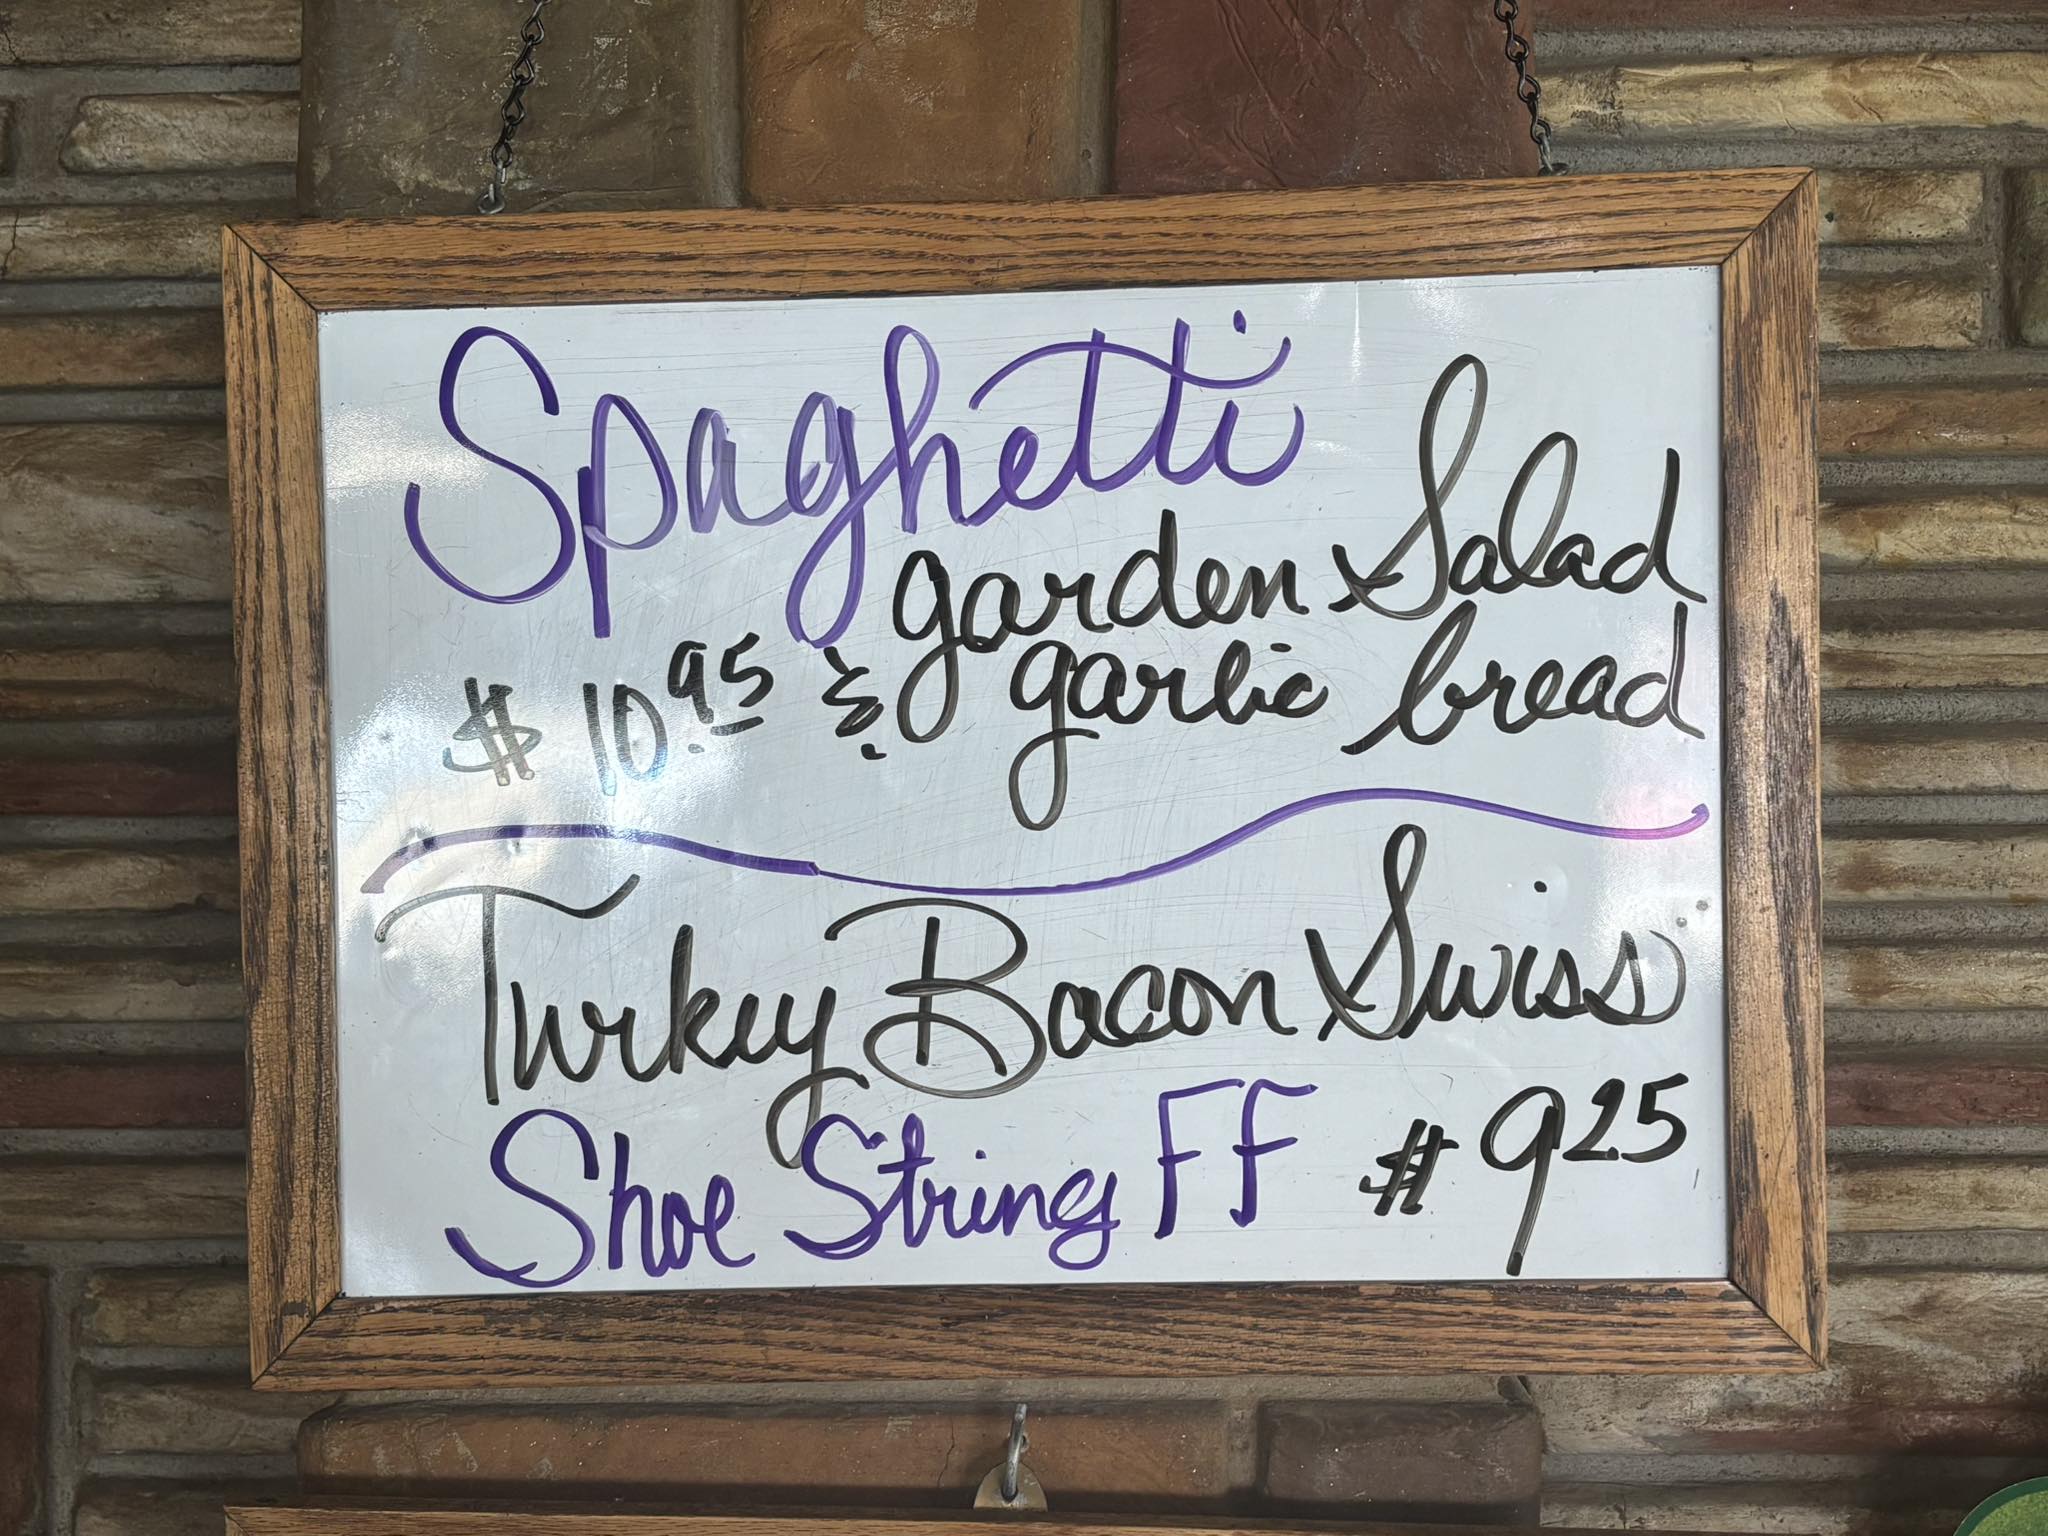 Spaghetti
garden Salad
$10.95 & garlic bread
Turkey Bacon Swiss
Shoe String FF $9.25